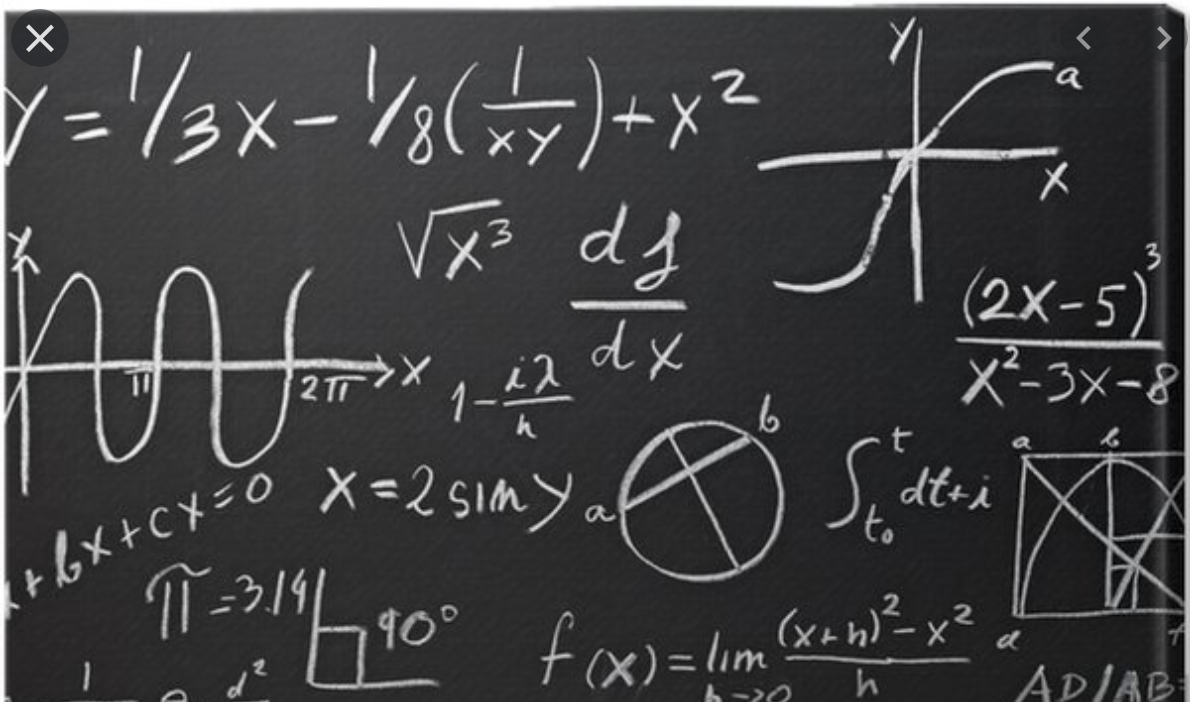 y = 1/3x - 1/8(1/xy) + x²
y
a
x
√x³
df/dx
(2x-5)³/x²-3x-8
y
π
2π
x
1-iλ/h
b
a
x = 2 sin y
∫ t t₀ dt+i
a b
+bx+cx=0
π=3.14
90°
f(x) = lim h→0 (x+h)²-x²/h
d
1
d²
AD/AB=